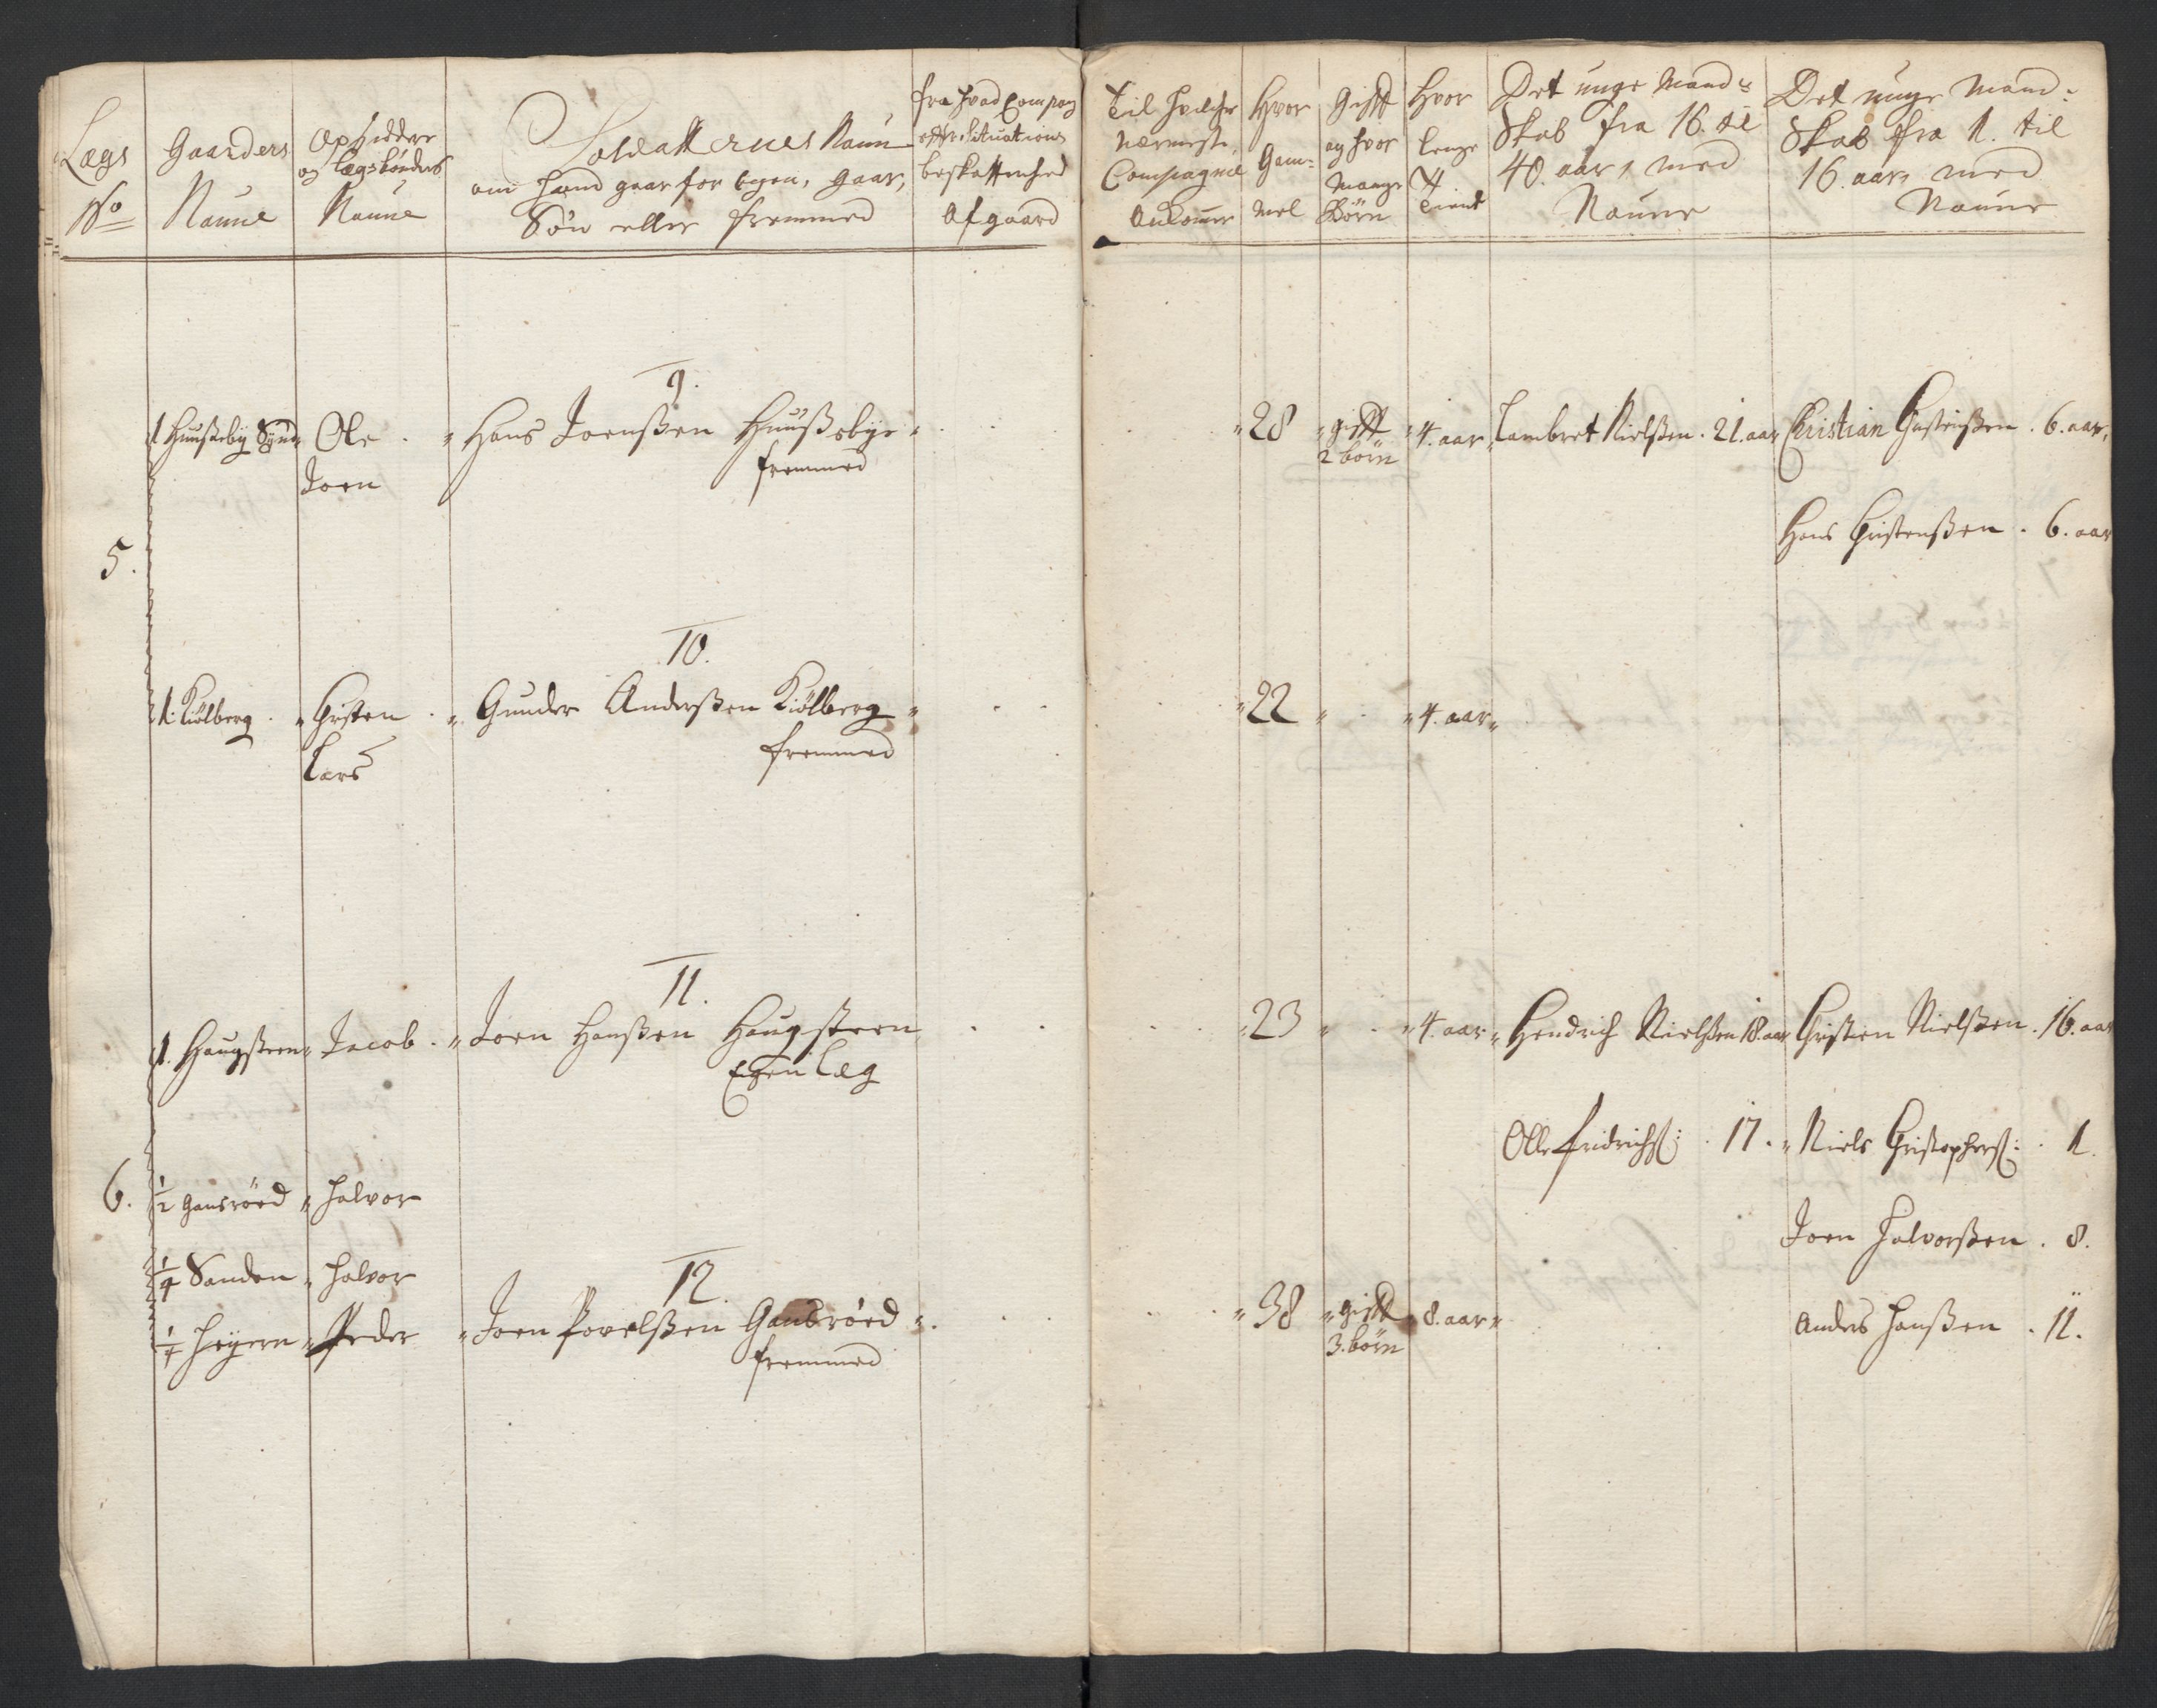 Lægs
No
Gaarders
Naune
Opsidder
og lægsbønders
Naune
Soldatternes Naun
om hand gaar for egen, gaar,
Søn eller fremmed
fra hvad Compag
efter Situations
beskaffenhed
Afgaard
til hvilche
nærmeste
Compagnie
Ankomer
Hvor
Gam-
mel
Gifft
og hvor
Mange
Børn
Hvor
lenge
tient
Det unge Mand-
skab fra 16. til
40. aar, med
Naune
Det unge Mand-
skab fra 1. til
16. aar, med
Naune
9.
1 Huusebÿ Synd
Ole
Joen
Hans Joenßen Huußebye
fremmed
28
gifft
2 børn
4. aar
Lambret Nielßen . 21. aar
Christian Gristenßen . 6. aar,
Hans Gristenßen . 6. aar
5.
10.
1. Kiølberg
Gristen
Lars
Gunder Anderßen Kiølberg
fremmed
22
4. aar
11.
1. Haugsteen
Jacob
Joen Hanßen Haugsteen
Egen Læg
23
4. aar
Hendrich Nielßen 18. aar
Gristen Nielßen . 16. aar
Olle fridrichß: . 17.
Niels Gristopherß: . 1.
6.
1/2 Gansrøed
Halvor
Joen Halvorßen . 8.
1/4 Sanden
Halvor
12.
1/4 Heyern
Peder
Joen Povelßen Gansrøed
fremmed
38
gifft
3. børn
8. aar
Anders Hanßen . 11.